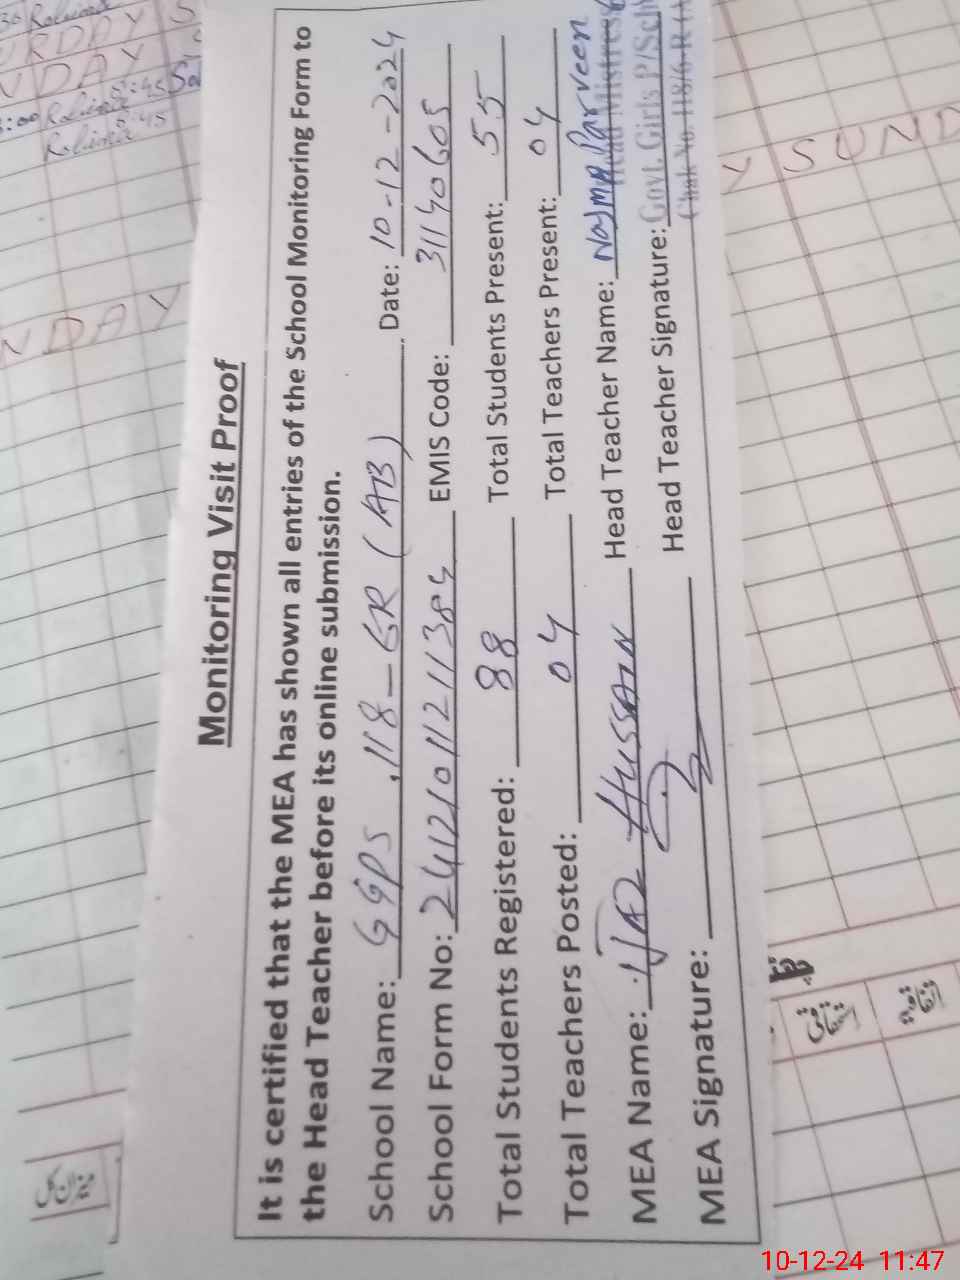 Monitoring Visit Proof
It is certified that the MEA has shown all entries of the School Monitoring Form to
the Head Teacher before its online submission.
School Name: GGPS .118-GR (AB) Date: 10-12-2024
School Form No: 2412101121138 EMIS Code: 31140605
Total Students Registered: 88 Total Students Present: 55
Total Teachers Posted: 04 Total Teachers Present: 04
MEA Name: Hussain Head Teacher Name: Najma Parveen
MEA Signature: Head Teacher Signature:
Head Mistress
Govt. Girls P/Sch
Chak No. 118/6-R
SUND
NDAY
URDAY S
NDAY
5:45
Rolima
5:45
میزان کل
10-12-24 11:47